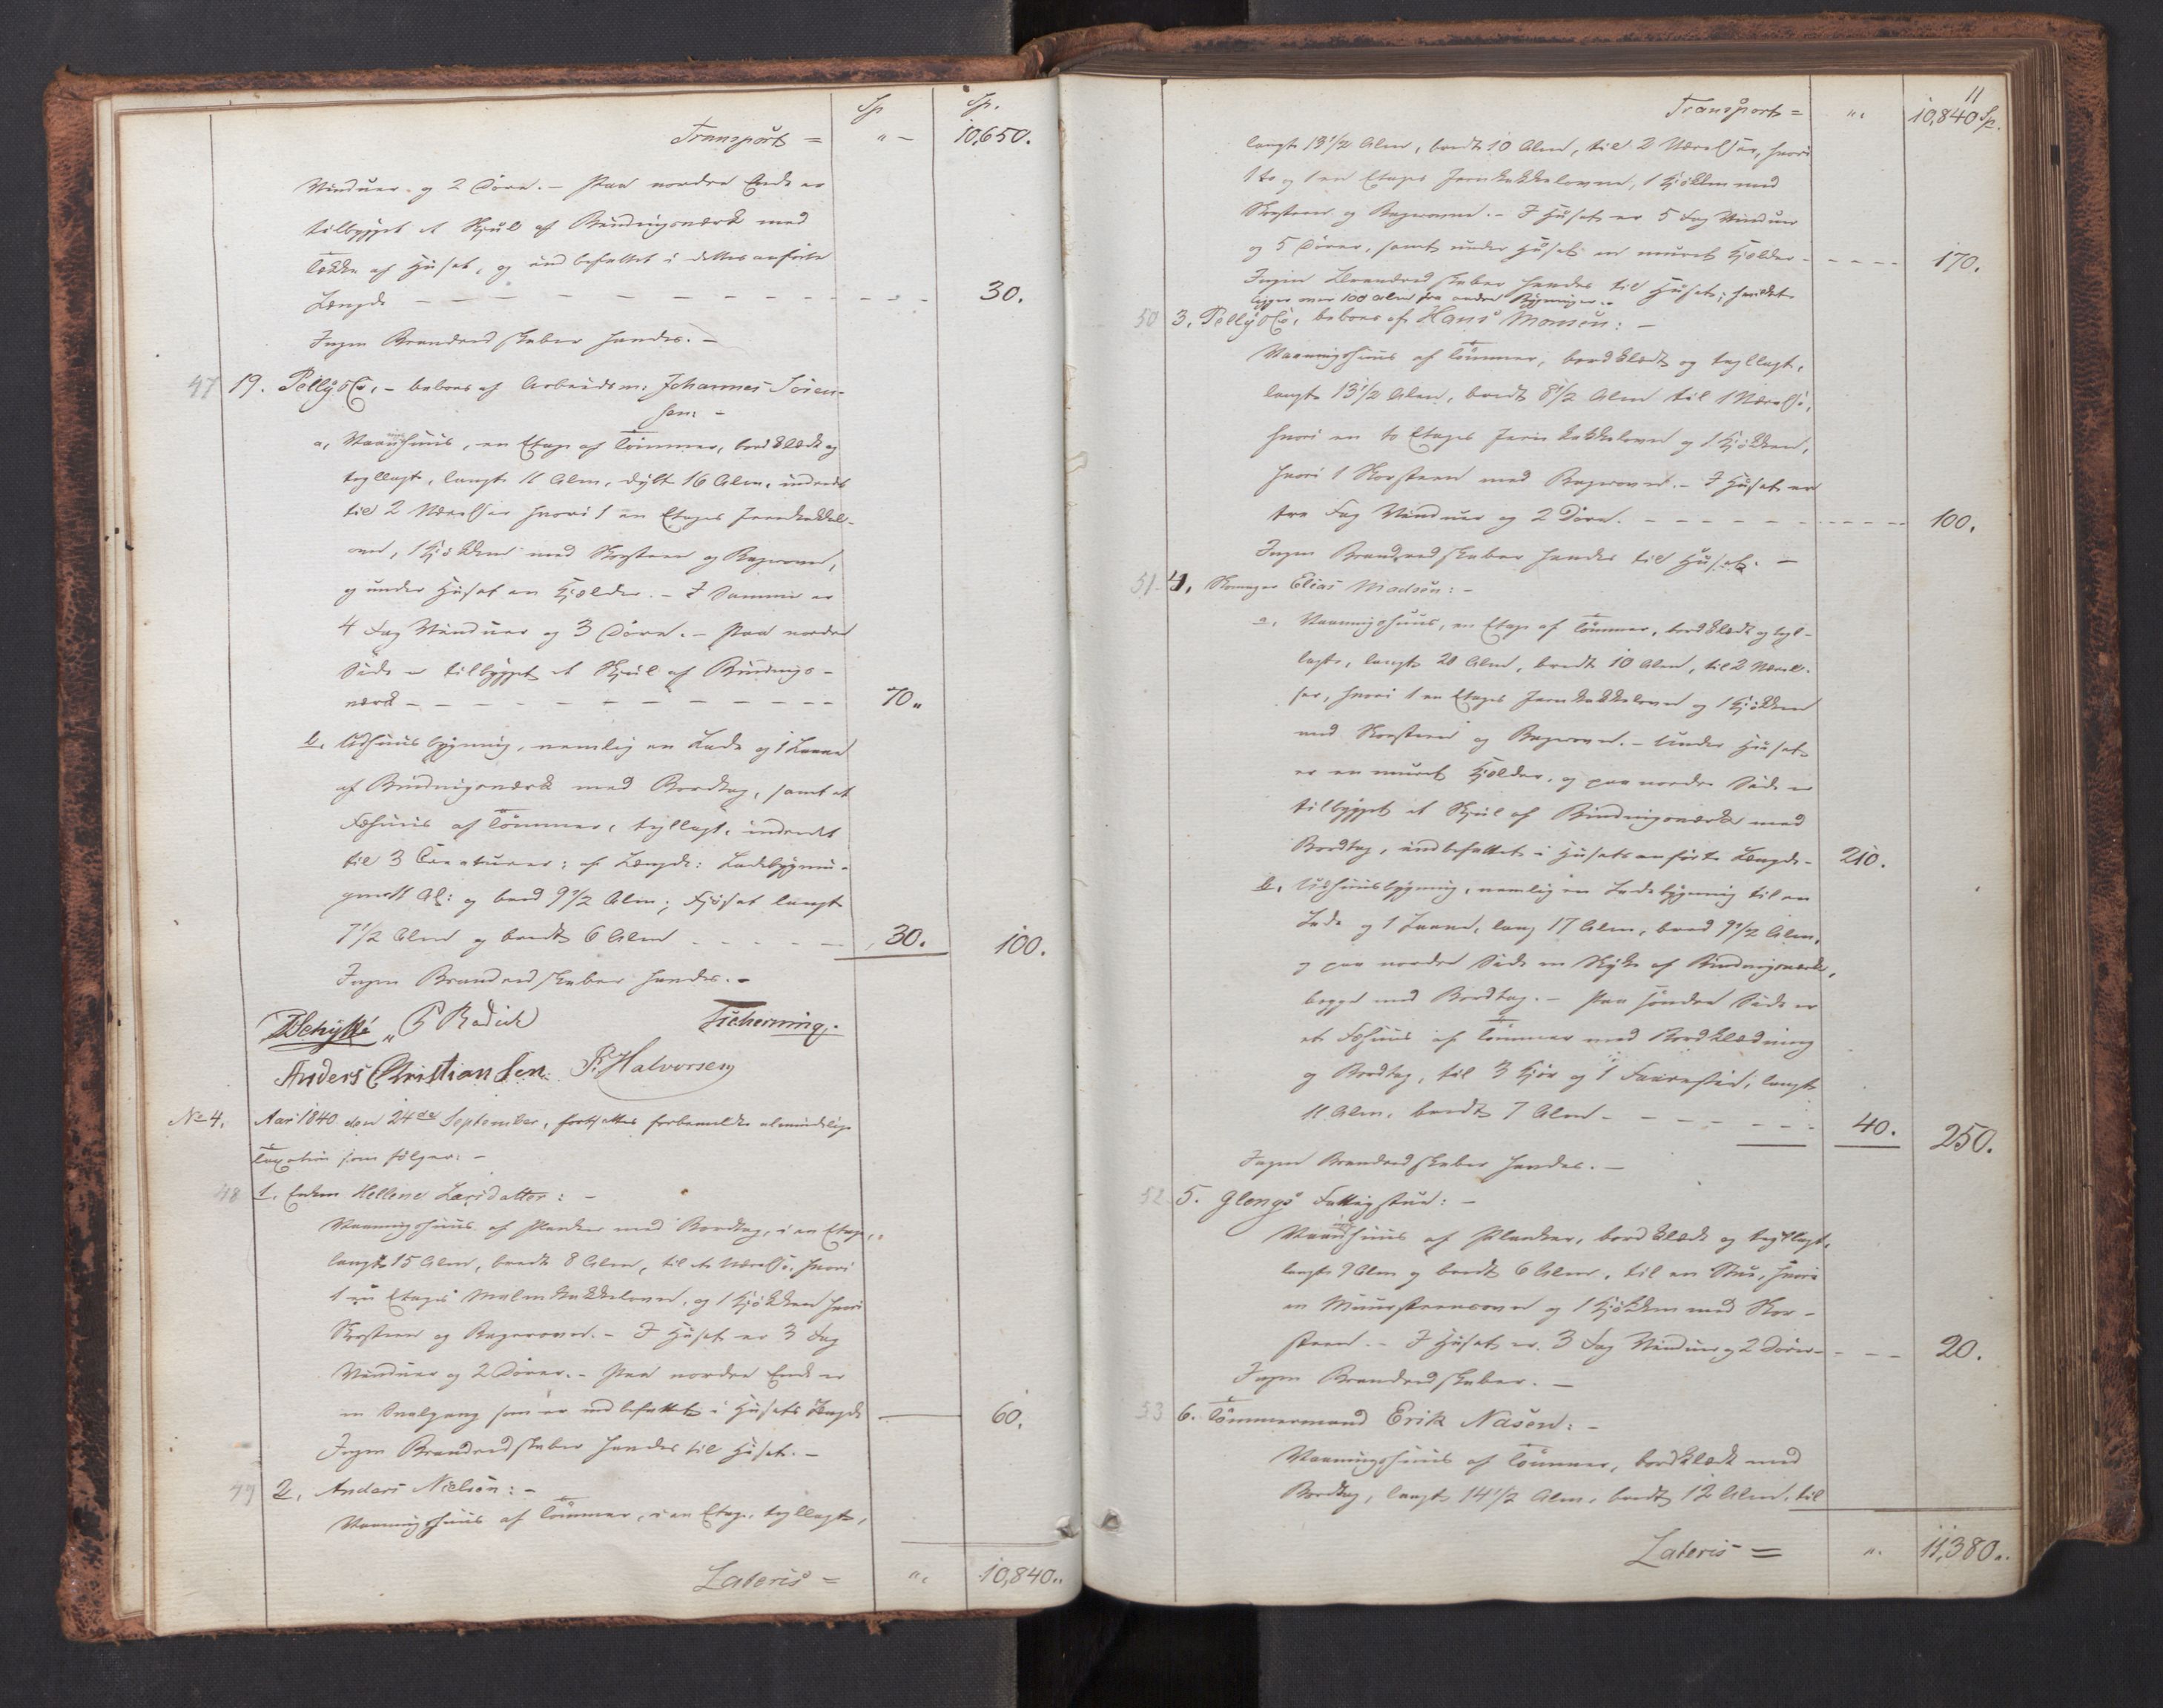 Sp Sp.
Transport = " - 10,650.
Vinduer og 2 Döre. - Paa nordre Ende er
tilbygget et Skjul af Bindingsværk med
Tække af Huset, og indbefattet i dettes anførte
Længde - - - 30.
Ingen Brandredskaber havdes. -
47 19. Pelly & Co, - beboes af Arbeidsm: Johannes Sören-
sen: -
a, Vaaningshuus, en Etage af Tömmer, bordklædt og
tegllagt, langt 11 Alen, dybt 16 Alen, indredet
til 2 Værelser hvori 1 en Etages Jernkakkel-
ovn, 1 Kjökken med Skorsteen og Bagerovn,
og under Huset en Kjelder. - I Samme er
4 Fag Vinduer og 3 Döre. - Paa nordre
Side er tilbygget et Skjul af Bindings-
værk - - - 70"
b, Udhuusbygning, nemlig en Lade og 1 Laave
af Bindingsværk med Bordtag, samt et
Fæhuus af Tömmer, tegllagt, indredet
til 3 Creaturer; af Længde: Ladebygnin-
gen 11 Al: og bred 9 1/2 Alen; Fjöset langt
7 1/2 Alen og bredt 6 Alen - - - 30. 100.
Ingen Brandredskaber havdes. -
Tscherning.
Anders Christiansen. P. Halvorsen
No 4. Aar 1840 den 24de September, fortsattes forbemeldte almindelige
Taxation som fölger: -
48 1. Enken Hellene Larsdatter: -
Vaaningshuus af Planker med Bordtag, i en Etage,
langt 15 Alen, bredt 8 Alen, til et Værelse, hvori
1 en Etages Malmkakkelovn, og 1 Kjökken hvori
Skorsteen og Bagerovn. - I Huset er 3 Fag
Vinduer og 2 Dörer. - Paa nordre Ende er
en Svalgang som er indbefattet i Husets Længde - 60.
Ingen Brandredskaber havdes til Huset. -
49 2. Anders Nielsen: -
Vaaningshuus af Tömmer, i en Etage, tegllagt,
Lateris = " 10,840"
11
Transport = " 10,840 Sp.
langt 13 1/2 Alen, bredt 10 Alen, til 2 Værelser, hvori
1 to og 1 en Etages Jernkakkelovne, 1 Kjökken med
Skorsteen og Bagerovn. - I Huset er 5 Fag Vinduer
og 5 Dörer, samt under Huset en muret Kjelder - - - 170.
Ingen Brandredskaber havdes til Huset; hvilket
ligger over 100 Alen fra andre Bygninger. -
50 3. Pelly & Co, beboes af Hans Monsen: -
Vaaningshuus af Tömmer, bordklædt og tegllagt,
langt 13 1/2 Alen, bredt 8 1/2 Alen til 1 Værelse,
hvori en to Etages Jern kakkelovn og 1 Kjökken,
hvori 1 Skorsteen med Bagerovn. - I Huset er
tre Fag Vinduer og 2 Döre. - - - 100.
Ingen Brandredskaber havdes til Huset. -
51. 4, Skomager Elias Madsen: -
a, Vaaningshuus, en Etage af Tömmer, bordklædt og tegl-
lagt, langt 20 Alen, bredt 10 Alen, til 2 Værel-
ser, hvori 1 en Etages Jernkakkelovn og 1 Kjökken
med Skorsteen og Bagerovn. - Under Huset
er en muret Kjelder, og paa nordre Side er
tilbygget et Skjul af Bindingsværk med
Bordtag, indbefattet i Husets anförte Længde - 210.
b, Udhuusbygning, nemlig en Ladebygning til en
Lade og 1 Laave, lang 17 Alen, bred 9 1/2 Alen,
og paa nordre Side en Skykke af Bindingsværk,
begge med Bordtag. - Paa söndre Side er
et Fæhuus af Tömmer med Bordklædning
og Bordtag, til 3 Kjör og 1 Faaresti, langt
11 Alen, bredt 7 Alen - - - 40. 250.
Ingen Brandredskaber havdes. -
52 5. Glengs Fattigstue: -
Vaaningshuus af Planker, bordklædt og tegllagt,
langt 9 Alen og bredt 6 Alen, til en Stue, hvori
en Muursteensovn og 1 Kjökken med Skor-
steen. - I Huset er 3 Fag Vinduer og 2 Dörer - - - 20.
Ingen Brandredskaber. -
53 6. Tömmermand Erik Näsen: -
Vaaningshuus af Tömmer, bordklædt med
Bordtag, langt 14 1/2 Alen, bredt 12 Alen, til
Lateris = " 11,380"